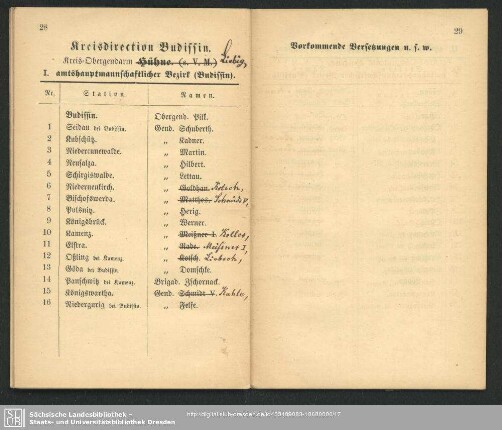 28
Kreisdirection Budissin.
Kreis-Obergendarm Hühne. (s. V. M.) Liebig,
I. amtshauptmannschaftlicher Bezirk (Budissin).
Nr. Station. Namen.
Budissin. Obergend. Pilk.
1 Seidau bei Budissin. Gend. Schuberth.
2 Kubschütz. „ Kadner.
3 Niedercunewalde. „ Martin.
4 Neusalza. „ Hilbert.
5 Schirgiswalde. „ Lettau.
6 Niederneukirch. „ Goldhan. Kotsch,
7 Bischofswerda. „ Matthes. Schmidt V,
8 Pulsnitz. „ Herig.
9 Königsbrück. „ Werner.
10 Kamenz. „ Meißner I. Kolles,
11 Elstra. „ Rade. Meißner I,
12 Oßling bei Kamenz. „ Kotsch. Liebsch,
13 Göda bei Budissin. „ Domschke.
14 Panschwitz bei Kamenz. Brigad. Zschornack.
15 Königswartha. Gend. Schmidt V. Kahle,
16 Niedergurig bei Budissin. „ Felfe.
29
Vorkommende Versetzungen u. s. w.
SLUB
Sächsische Landesbibliothek –
Staats- und Universitätsbibliothek Dresden